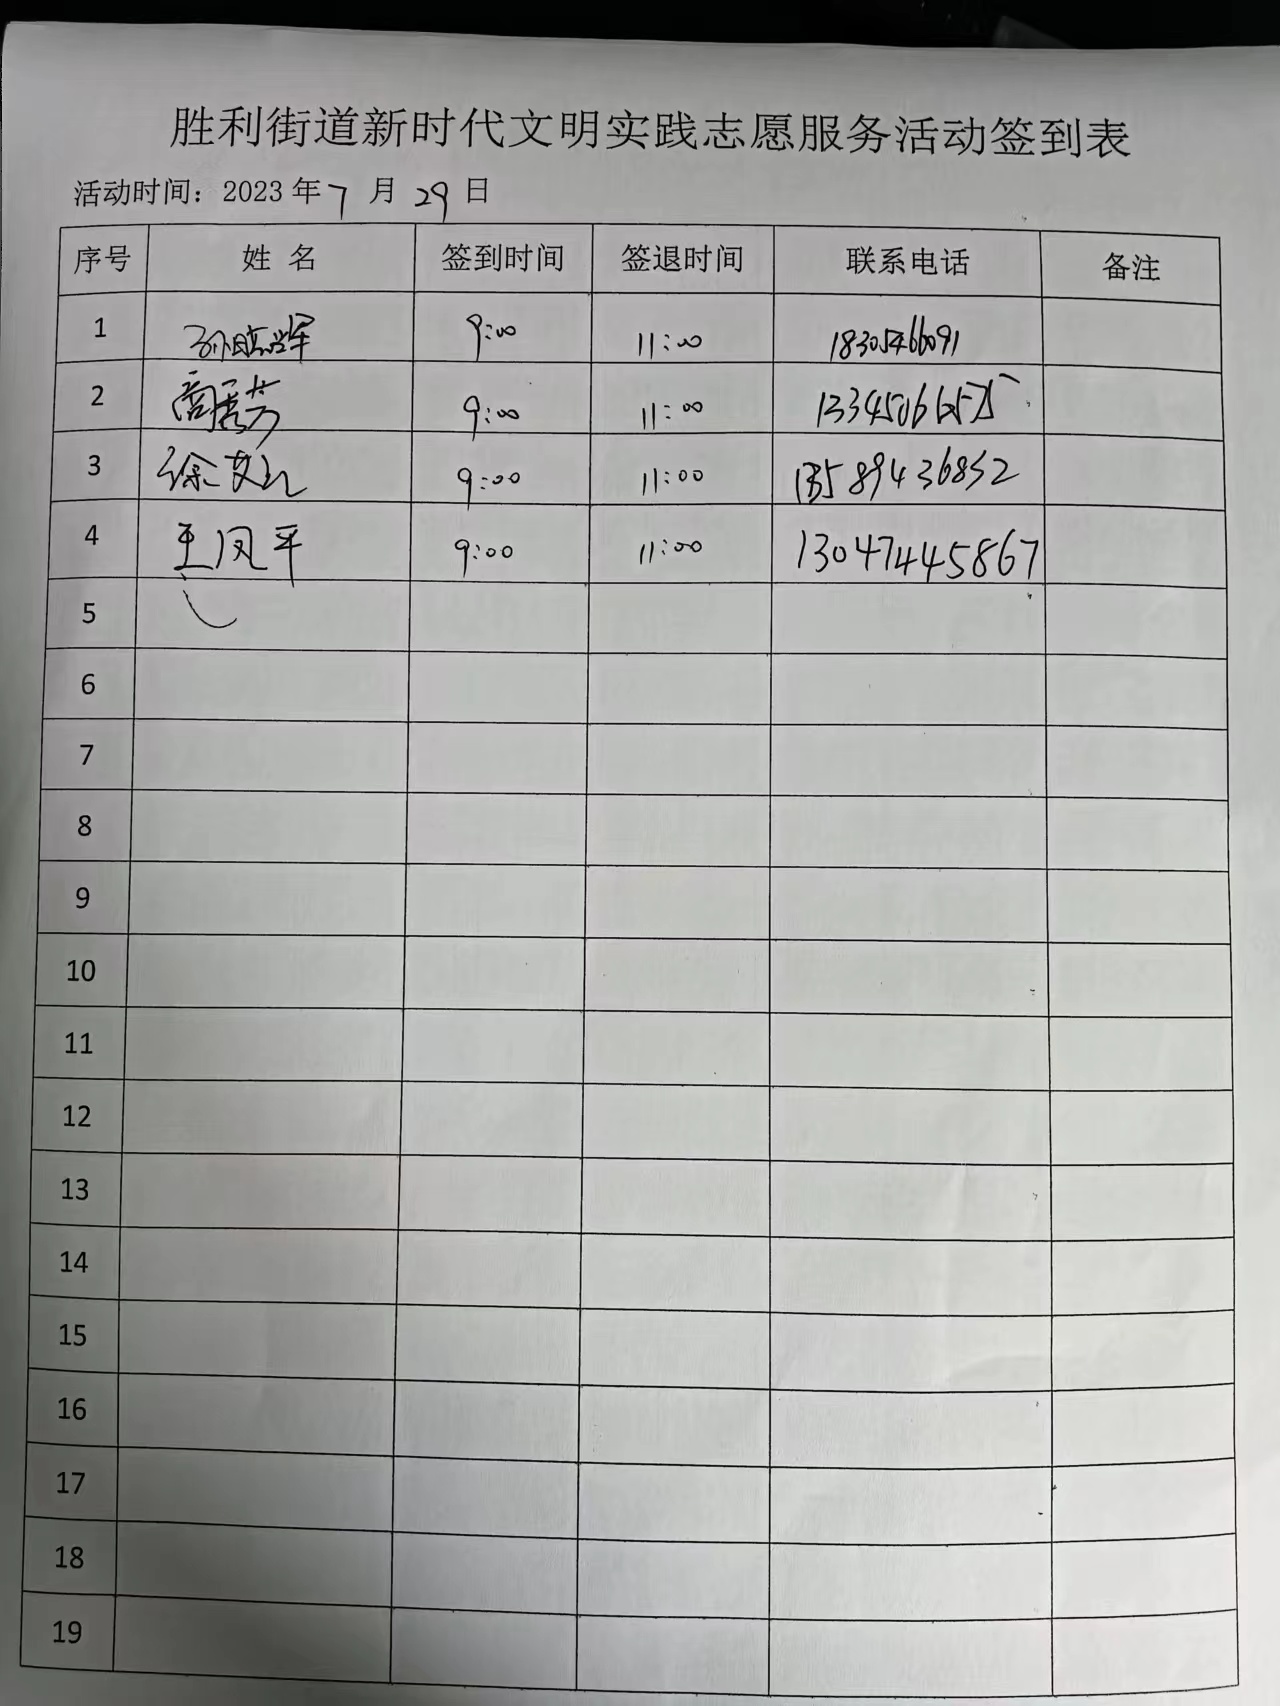 胜利街道新时代文明实践志愿服务活动签到表
活动时间：2023年7月29日
序号 姓 名 签到时间 签退时间 联系电话 备注
1 孙晓辉 9:00 11:00 18305466091
2 9:00 11:00
3 徐艾 9:00 11:00 13589436852
4 王凤平 9:00 11:00 13047445867
5
6
7
8
9
10
11
12
13
14
15
16
17
18
19